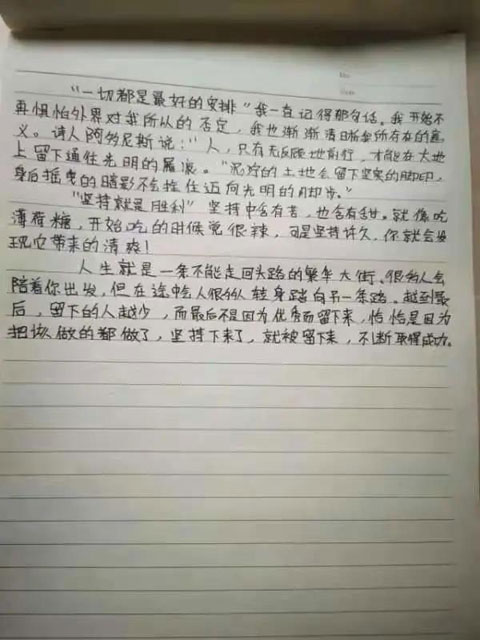 "一切都是最好的安排"我一直记得那句话。我开始不
再惧怕外界对我所做的否定,我也渐渐清晰我所存在的意
义。诗人阿多尼斯说:"人,只有无反顾地前行,才能在大地
上留下通往光明的履痕。"泥泞的土地会留下坚实的脚印,
身后摇曳的暗影不会拴住迈向光明的脚步。"
"坚持就是胜利"坚持中含有苦,也含有甜。就像吃
薄荷糖,开始吃的时候觉很辣,可是坚持许久,你就会发
现它带来的清爽!
人生就是一条不能走回头路的繁华大街、很多人会
陪着你出发,但在途中人很多人转身踏向另一条路。越到最
后,留下的人越少,而最后不是因为优秀而留下来,恰恰是因为
把该做的都做了,坚持下来了,就被留下来,不断取得成功。